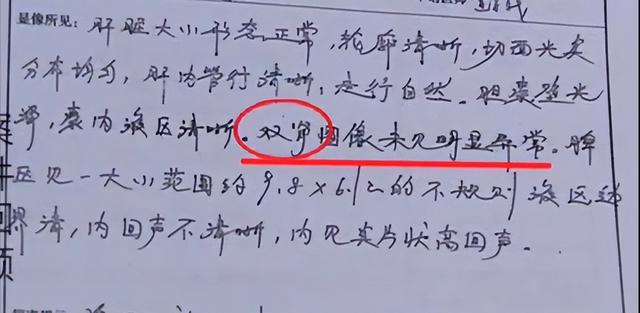 显像所见：肝脏大小形态正常，轮廓清晰，切面光点
分布均匀，肝内管行清晰，走行自然。胆囊壁光
滑，囊内液区清晰。双肾图像未见明显异常。脾
区见一大小范围约9.8×6.1的不规则液区边
界清，内回声不清晰，内见片状高回声。